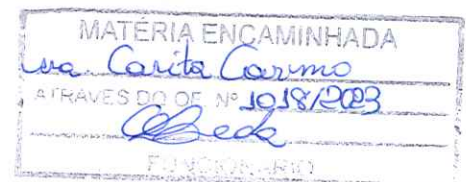 MATÉRIA ENCAMINHADA
Carita Carmo
ATRAVÉS DO OF. Nº 1018/2023
FUNCIONÁRIO